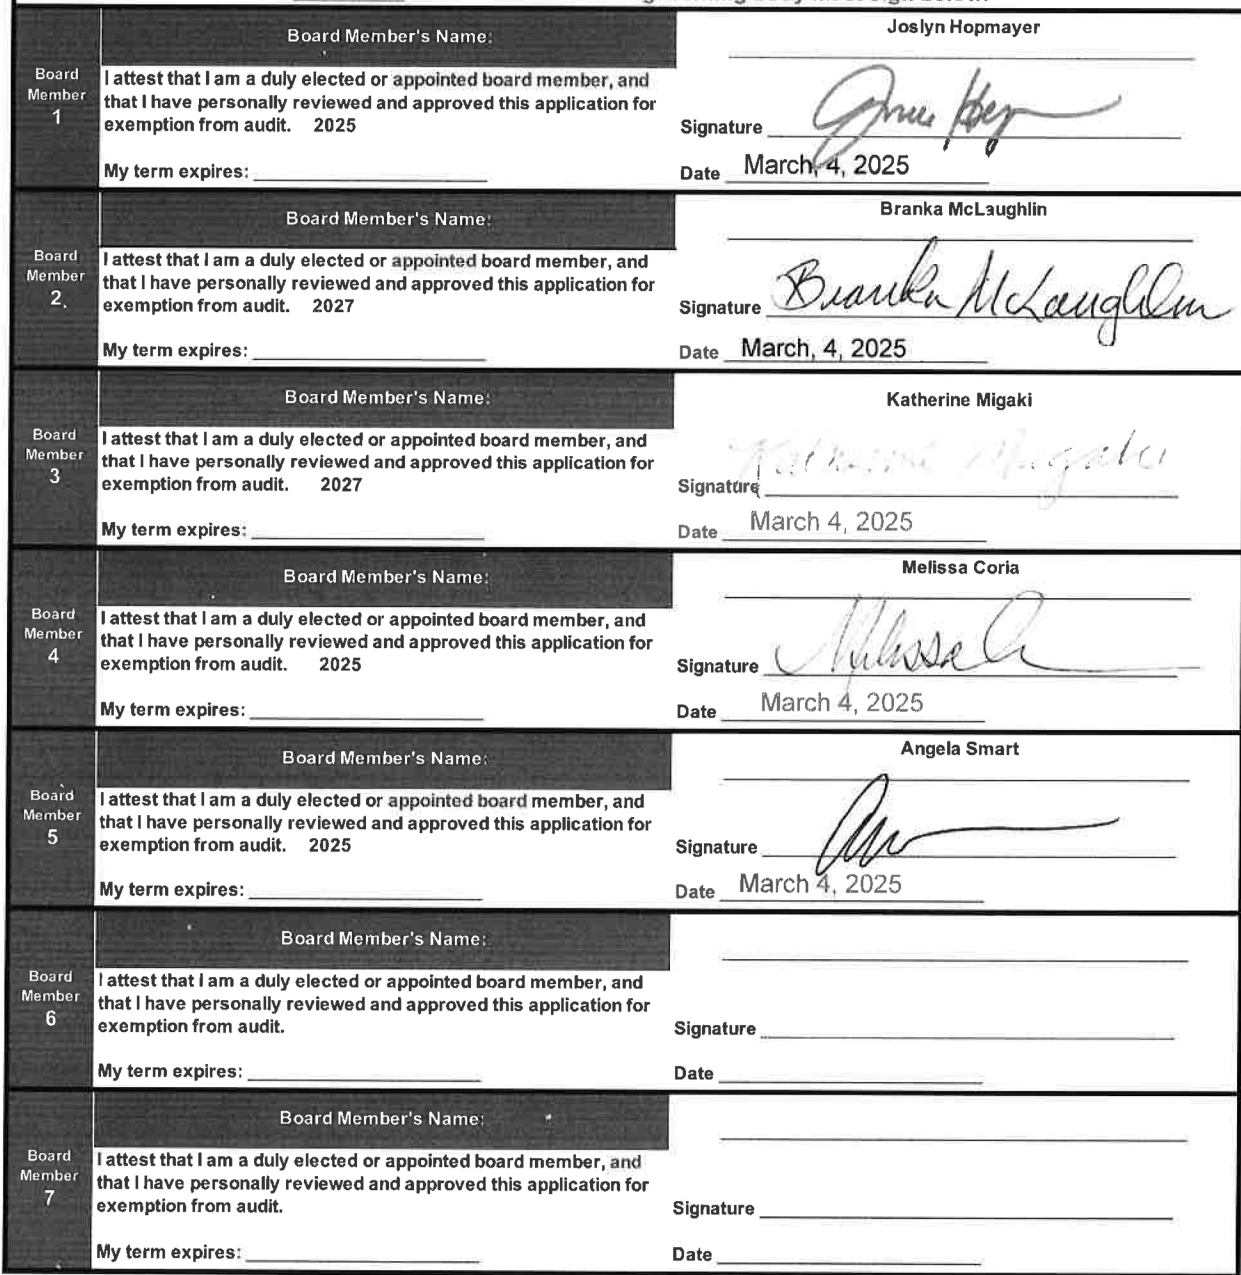 Board Member 1
Board Member's Name:
Joslyn Hopmayer
I attest that I am a duly elected or appointed board member, and
that I have personally reviewed and approved this application for
exemption from audit. 2025
Signature
My term expires:
Date March, 4, 2025
Board Member 2
Board Member's Name:
Branka McLaughlin
I attest that I am a duly elected or appointed board member, and
that I have personally reviewed and approved this application for
exemption from audit. 2027
Signature Branka McLaughlin
My term expires:
Date March, 4, 2025
Board Member 3
Board Member's Name:
Katherine Migaki
I attest that I am a duly elected or appointed board member, and
that I have personally reviewed and approved this application for
exemption from audit. 2027
Signature Katherine Migaki
My term expires:
Date March 4, 2025
Board Member 4
Board Member's Name:
Melissa Coria
I attest that I am a duly elected or appointed board member, and
that I have personally reviewed and approved this application for
exemption from audit. 2025
Signature Melissa
My term expires:
Date March 4, 2025
Board Member 5
Board Member's Name:
Angela Smart
I attest that I am a duly elected or appointed board member, and
that I have personally reviewed and approved this application for
exemption from audit. 2025
Signature
My term expires:
Date March 4, 2025
Board Member 6
Board Member's Name:
I attest that I am a duly elected or appointed board member, and
that I have personally reviewed and approved this application for
exemption from audit.
Signature
My term expires:
Date
Board Member 7
Board Member's Name:
I attest that I am a duly elected or appointed board member, and
that I have personally reviewed and approved this application for
exemption from audit.
Signature
My term expires:
Date